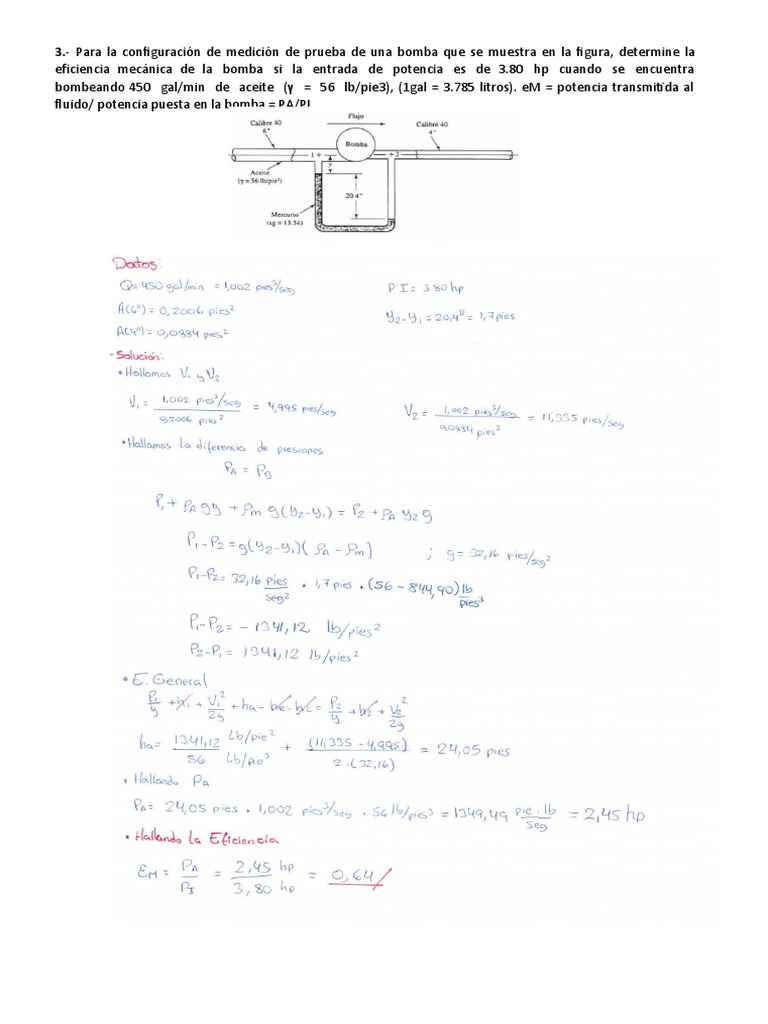 3.- Para la configuración de medición de prueba de una bomba que se muestra en la figura, determine la
eficiencia mecánica de la bomba si la entrada de potencia es de 3.80 hp cuando se encuentra
bombeando 450 gal/min de aceite (γ = 56 lb/pie3), (1gal = 3.785 litros). eM = potencia transmitida al
fluido/ potencia puesta en la bomba = PA/PI
Flujo
Calibre 40
6"
Calibre 40
4"
Bomba
1 +
+ 2
y
Aceite
(γ = 56 lb/pie³)
20.4"
Mercurio
(sg = 13.54)
Datos:
Q = 450 gal/min = 1,002 pies³/seg
PI = 3.80 hp
A(6") = 0,2006 pies²
y₂-y₁ = 20,4" = 1,7 pies
A(4") = 0,0884 pies²
- Solución:
• Hallamos V₁ y V₂
V₁ = 1,002 pies³/seg / 0,2006 pies² = 4,995 pies/seg
V₂ = 1,002 pies³/seg / 0,0884 pies² = 11,335 pies/seg
• Hallamos la diferencia de presiones
PA = PB
P₁ + ρA g y + ρm g(y₂-y₁) = P₂ + ρA y₂ g
P₁-P₂ = g(y₂-y₁)(ρA - ρm) ; g = 32,16 pies/seg²
P₁-P₂ = 32,16 pies/seg² • 1,7 pies • (56 - 844,90) lb/pies³
P₁-P₂ = - 1341,12 lb/pies²
P₂-P₁ = 1341,12 lb/pies²
• E. General
P₁/γ + h₁ + V₁²/2g + ha - he - hL = P₂/γ + h₂ + V₂²/2g
ha = 1341,12 Lb/pie² / 56 Lb/pie³ + (11,335 - 4,995) / 2·(32,16) = 24,05 pies
• Hallando PA
PA = 24,05 pies • 1,002 pies³/seg • 56 lb/pies³ = 1349,49 pie . lb/seg = 2,45 hp
• Hallando la Eficiencia
EM = PA/PI = 2,45 hp / 3,80 hp = 0,64